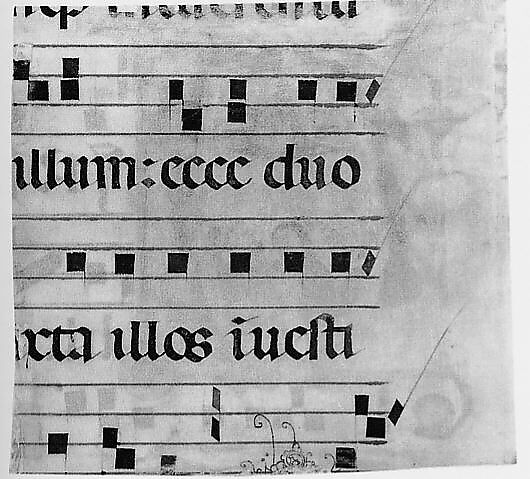 illum:ecce duo
xta illos īuesti